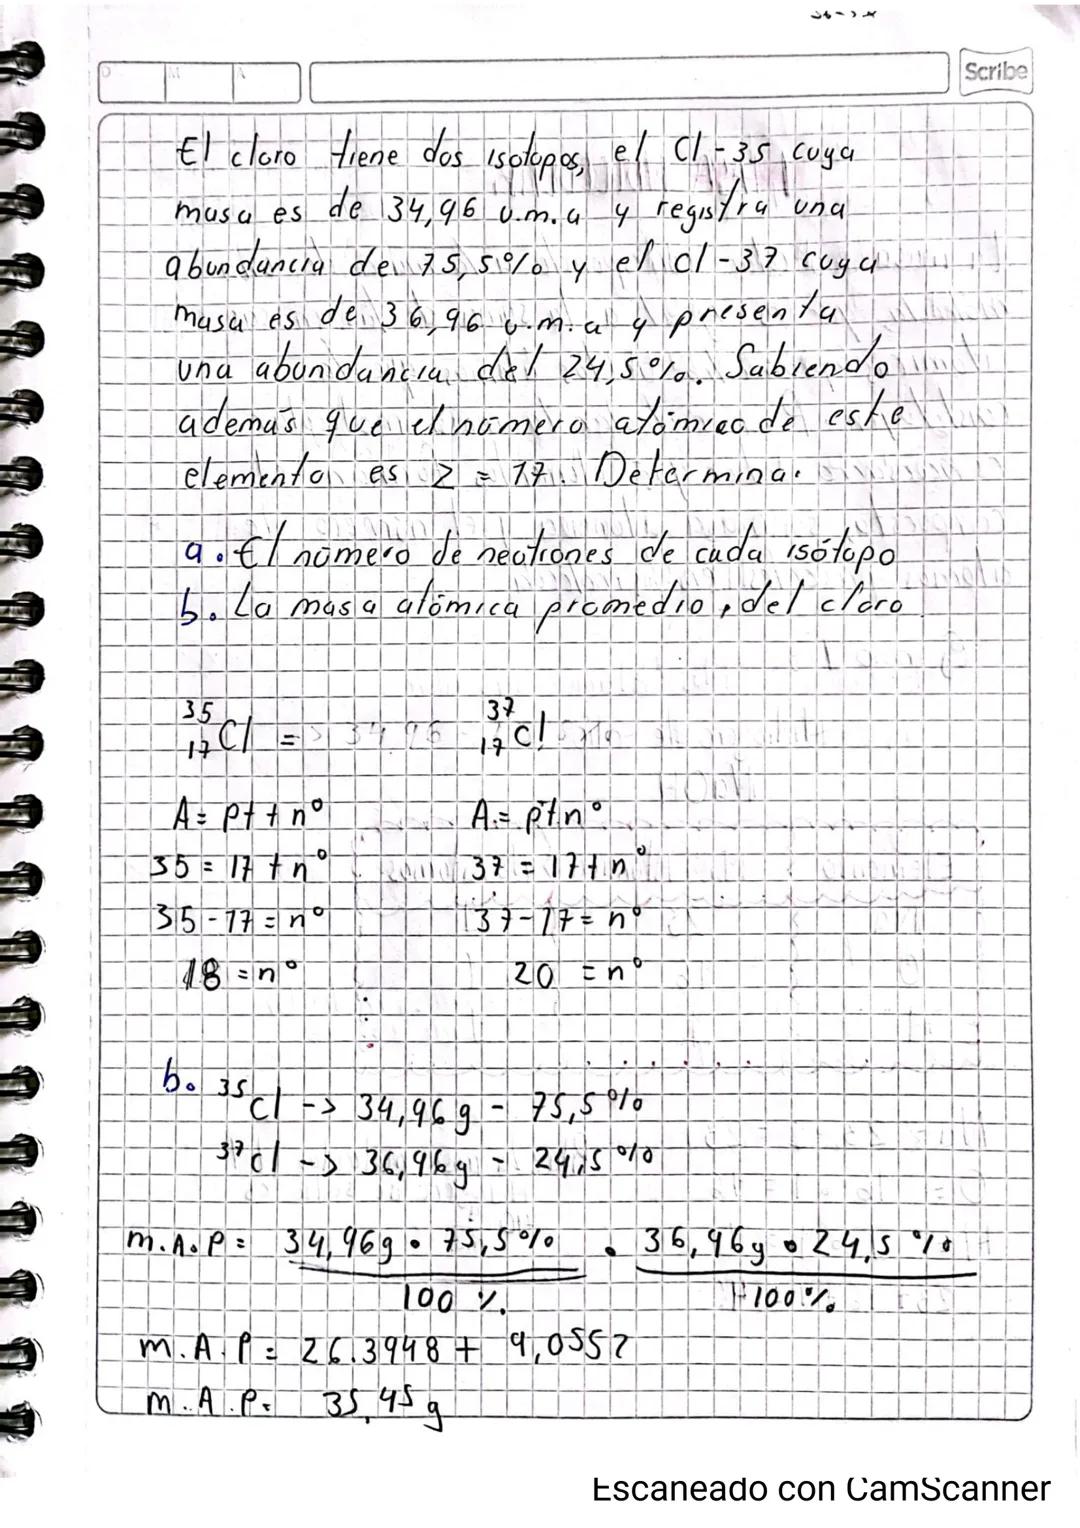 D M A
Scribe
El cloro tiene dos isótopos, el Cl-35 cuya
masa es de 34,96 u.m.a y registra una
abundancia de 75,5% y el cl-37 cuya
masa es de 36,96 u.m.a y presenta
una abundancia del 24,5%. Sabiendo
además que el número atómico de este
elemento es Z = 17. Determina.
a. El número de neutrones de cada isótopo
b. La masa atómica promedio, del cloro
35 37
17 Cl = > 34,96 17 cl
A = p+ + n° A = p+ + n°
35 = 17 + n° 37 = 17 + n°
35 - 17 = n° 37 - 17 = n°
18 = n° 20 = n°
b. 35 cl -> 34,96g - 75,5%
37 cl -> 36,96g - 24,5%
m.A.P = 34,96g • 75,5% • 36,96g • 24,5%
100 % 100%
m.A.P = 26.3948 + 9,0552
m.A.P. 35,45 g
Escaneado con CamScanner